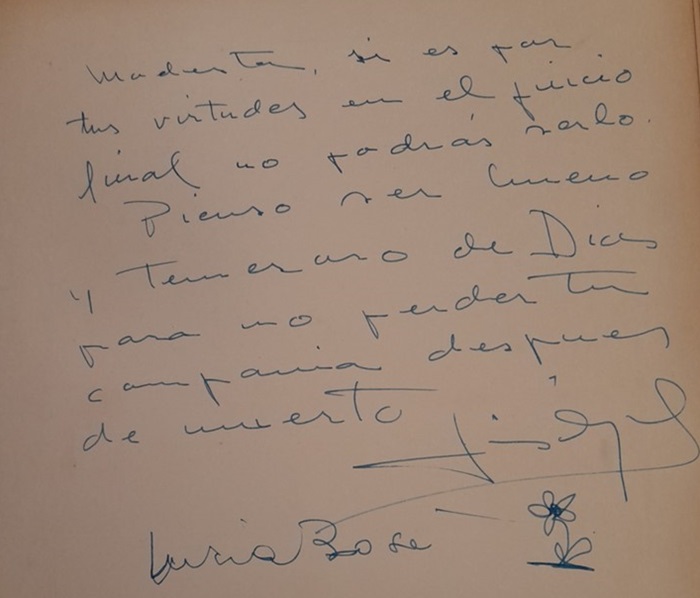 Modesta, si es por
tus virtudes en el juicio
final no podrás serlo.
Pienso ser bueno
y temeroso de Dios
para no perder tu
compania despues
de muerto
Lucia Bose